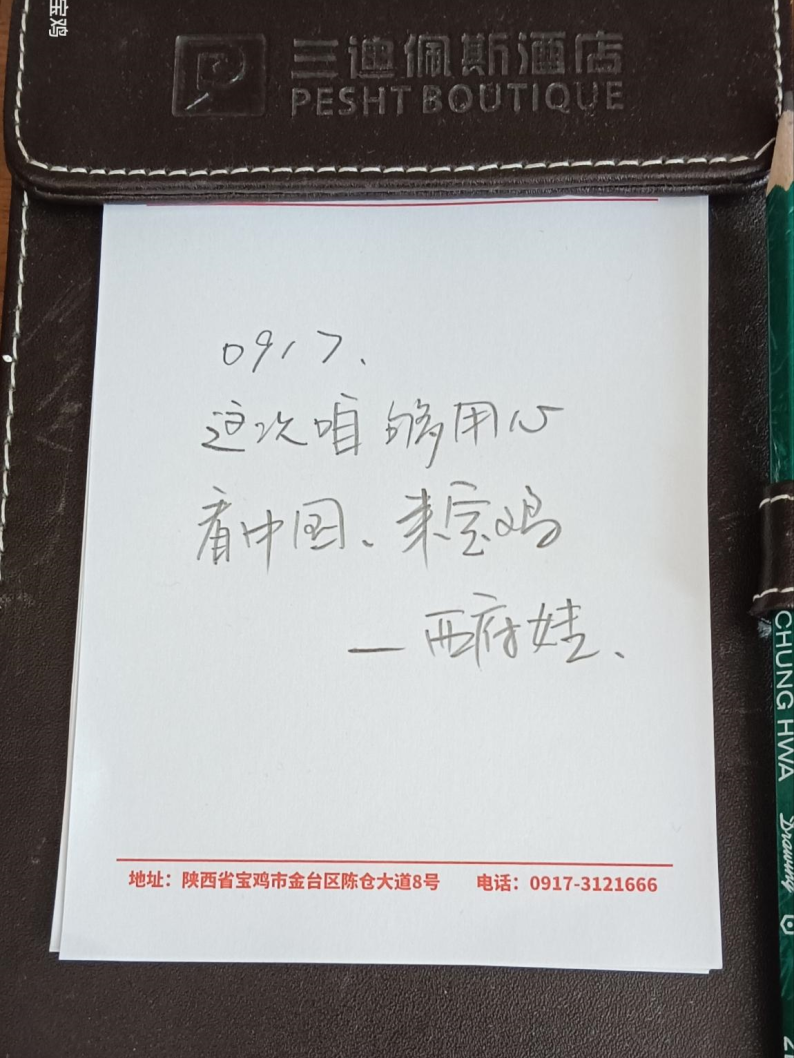 宝鸡
三迪佩斯酒店
PESHT BOUTIQUE
0917、
这次咱够用心
看中国、来宝鸡
—西府娃、
地址：陕西省宝鸡市金台区陈仓大道8号 电话：0917-3121666
CHUNG HWA
Drawing